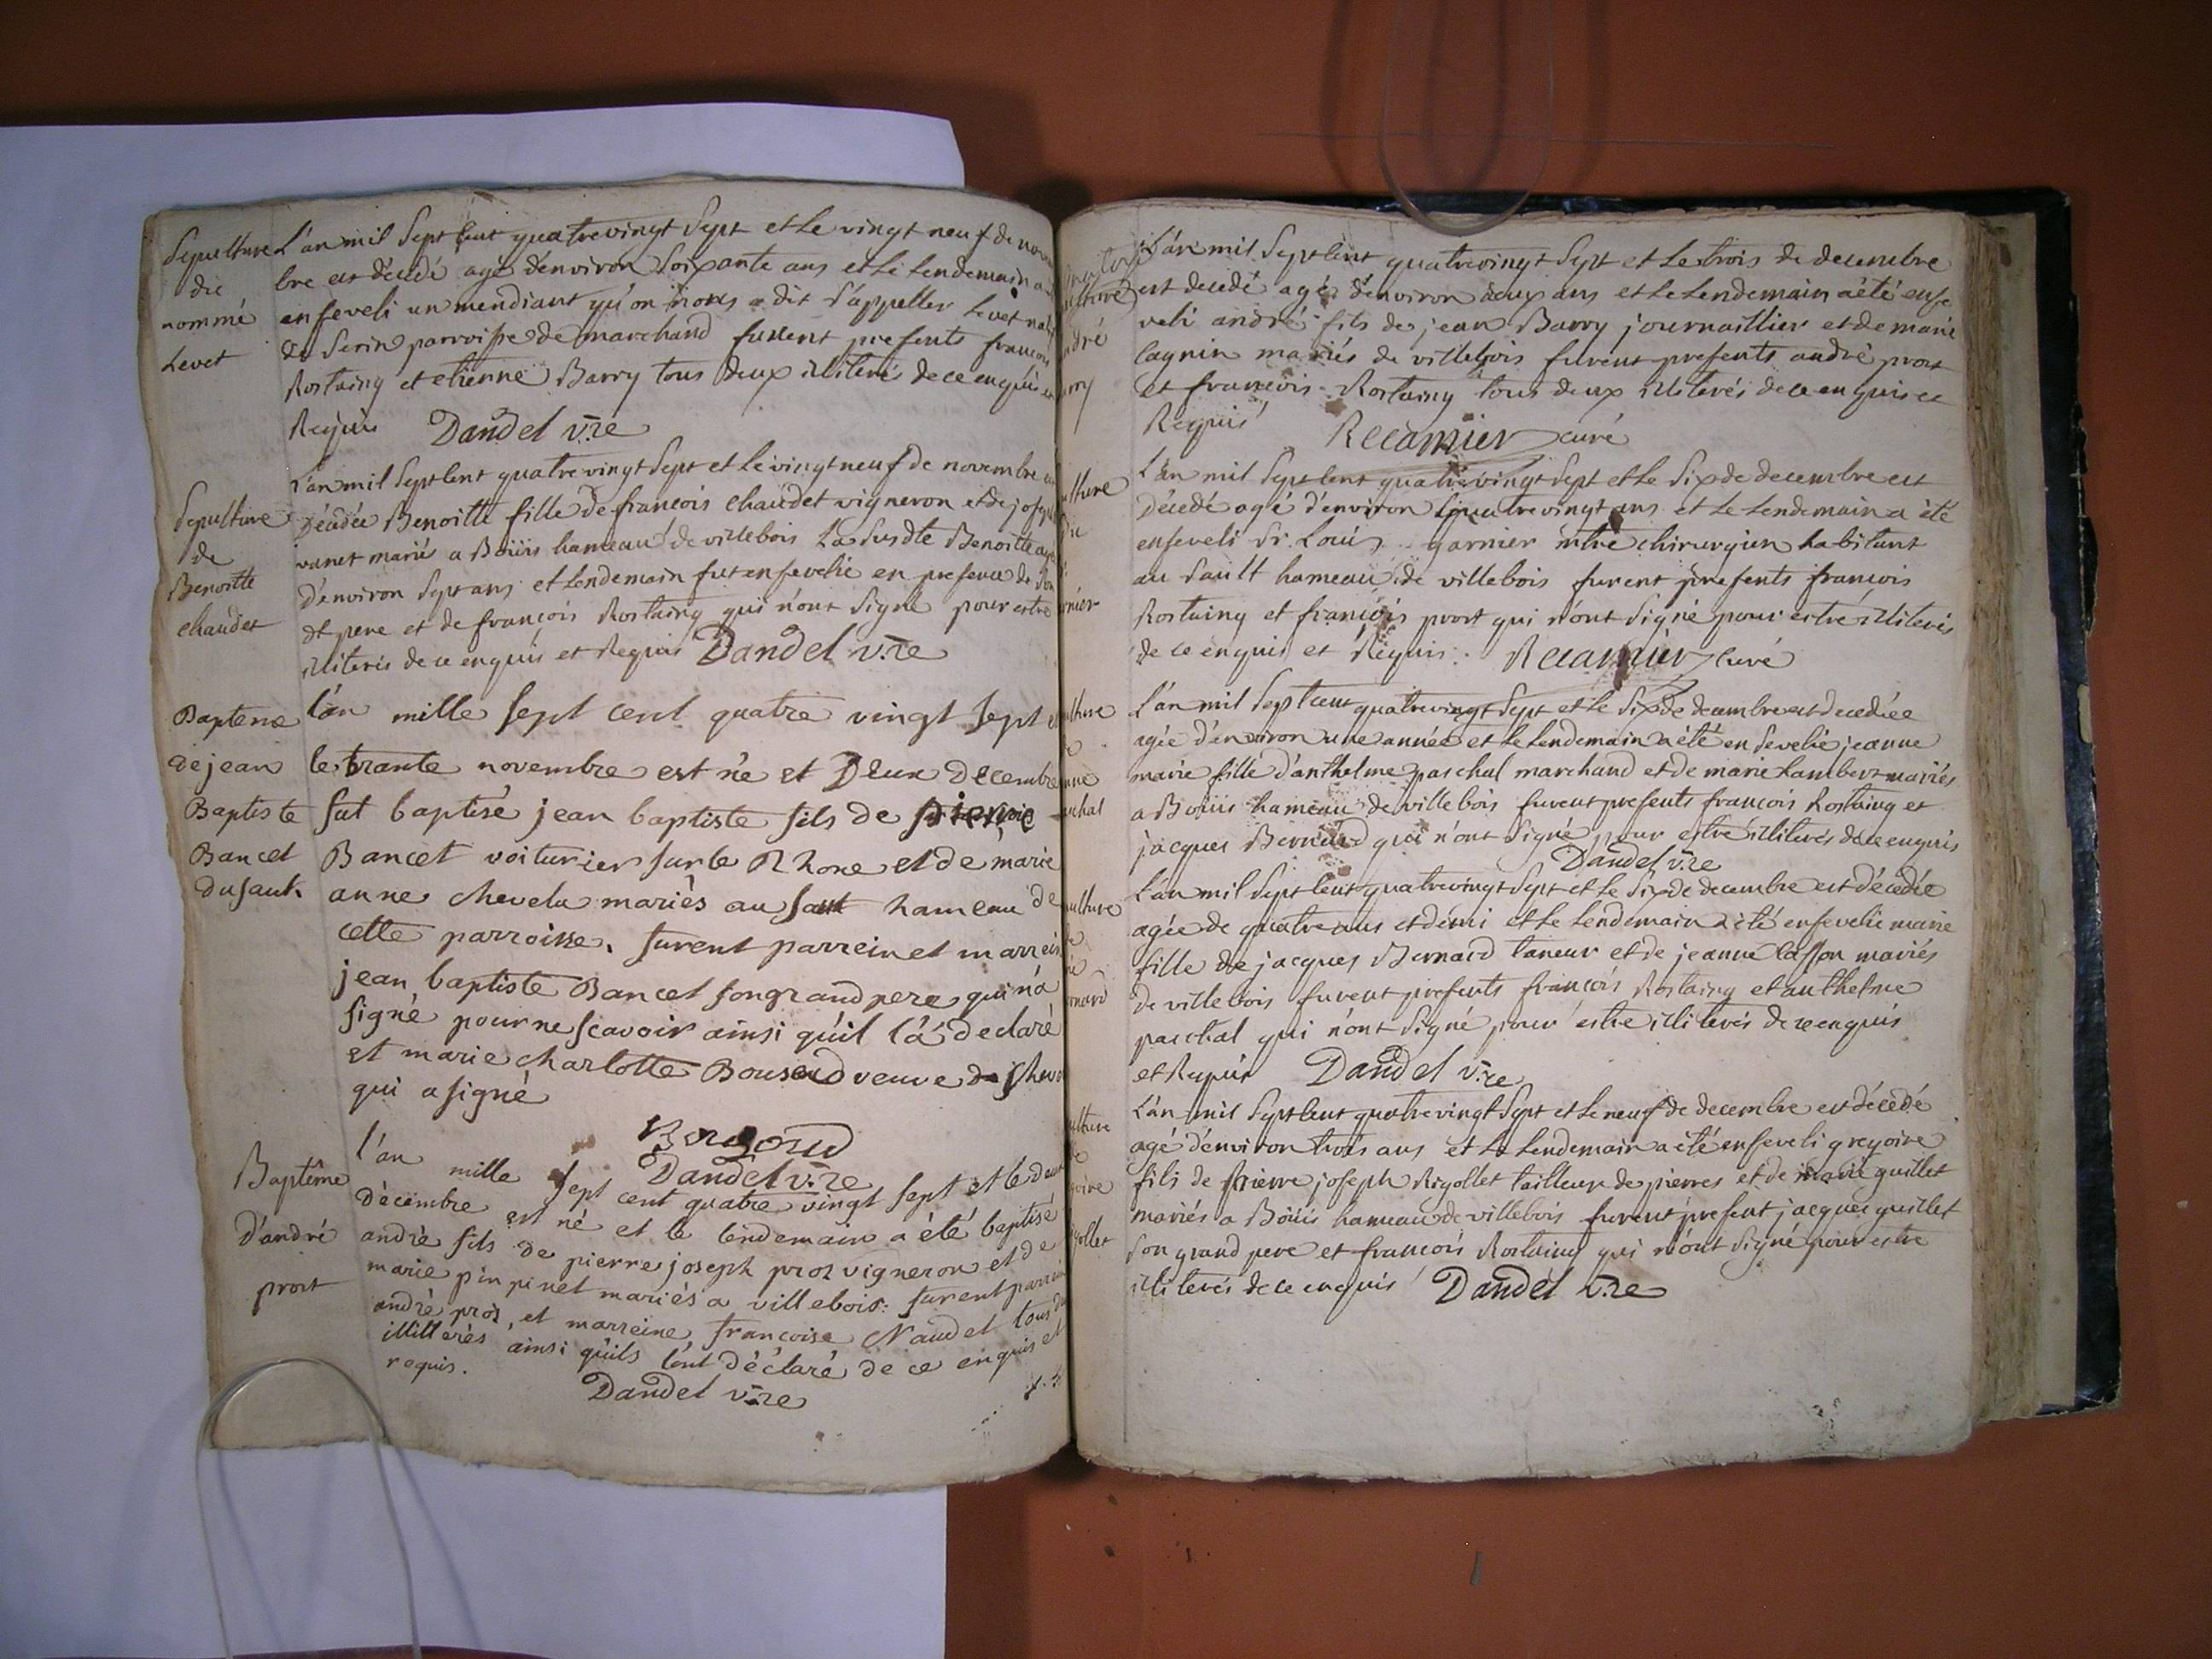 Sepulture
du
nommé
Levet
L'an mil Sept Cent quatrevingt Sept et le vingt neuf de novem
bre est décédé agé d'environ Soixante ans et le Lendemain a
enseveli un mendiant qu'on nous a dit s'appeller Levet
de Serin parroisse de marchand furent presents francois
Rostaing et etienne Barry tous deux illiterés de ce enquis et
Requis Dandel v.re
Sepulture
de
Benoitte
chaudet
L'an mil Sept Cent quatre vingt Sept et le vingt neuf de novembre
décédée Benoitte fille de francois chaudet vigneron et de
vanet mariés a Boüis hameau de villebois La susdte Benoitte agée
d'environ Sept ans et Lendemain fut ensevelie en presence de Son
dt pere et de francois Rostaing qui n'ont Signé pour estre
illiterés de ce enquis et Requis Dandel v.re
Bapteme
de jean
Baptiste
Bancet
du Sault
l'an mille Sept cent quatre vingt Sept et
le trante novembre est né et Deux Decembre
fut baptisé jean baptiste fils de pierre
Bancet voiturier sur le Rhone et de marie
anne chevelu mariés au Sault hameau de
cette parroisse. furent parrein et marreine
jean baptiste Bancet son grand pere qui n'a
signé pour ne scavoir ainsi qu'il l'a declaré
et marie charlotte veuve de
qui a signé
Dandel v.re
Baptême
d'andré
prost
l'an mille Sept cent quatre vingt Sept et le deux
décembre est né et le lendemain a été baptisé
andré fils de pierre joseph prost vigneron et de
marie pin pinet mariés a villebois: furent parrein
andré prost, et marreine francoise Naudet tous deux
illitterés ainsi qu'ils l'ont déclaré de ce enquis et
requis.
Dandel v.re
L'an mil Sept Cent quatrevingt Sept et le trois de decembre
est decedé agé d'environ deux ans et le Lendemain a été ense
veli andré fils de jean Barry journaillier et de marie
Cagnin mariés de villebois furent presents andré prost
et francois Rostaing tous deux illiterés de ce enquis et
Requis Recamier curé
L'an mil Sept Cent quatrevingt Sept et le Six de decembre est
décedé agé d'environ quatrevingt ans et le Lendemain a été
enseveli Sr. Louis garnier mtre chirurgien habitant
au Sault hameau de villebois furent presents francois
Rostaing et francois prost qui n'ont Signé pour estre illiterés
de ce enquis et Requis. Recamier curé
L'an mil Sept Cent quatrevingt Sept et le Six de decembre est decedée
agée d'environ une année et le Lendemain a été ensevelie jeanne
marie fille d'anthelme paschal marchand et de marie Lambert mariés
a Boüis hameau de villebois furent presents francois Rostaing et
jacques Bernard qui n'ont Signé pour estre illiterés de ce enquis
Dandel v.re
L'an mil Sept Cent quatrevingt Sept et le Six de decembre est décedée
agée de quatre ans et demi et le Lendemain a été ensevelie marie
fille de jacques Bernard taneur et de jeanne Casson mariés
de villebois furent presents francois Rostaing et anthelme
paschal qui n'ont Signé pour estre illiterés de ce enquis
et Requis Dandel v.re
L'an mil Sept Cent quatrevingt Sept et le neuf de decembre est décedé
agé d'environ trois ans et le Lendemain a été enseveli gregoire
fils de pierre joseph Rigollet tailleur de pierres et de marie guillet
mariés a Boüis hameau de villebois furent present jacques guillet
son grand pere et francois Rostaing qui n'ont Signé pour estre
illiterés de ce enquis Dandel v.re